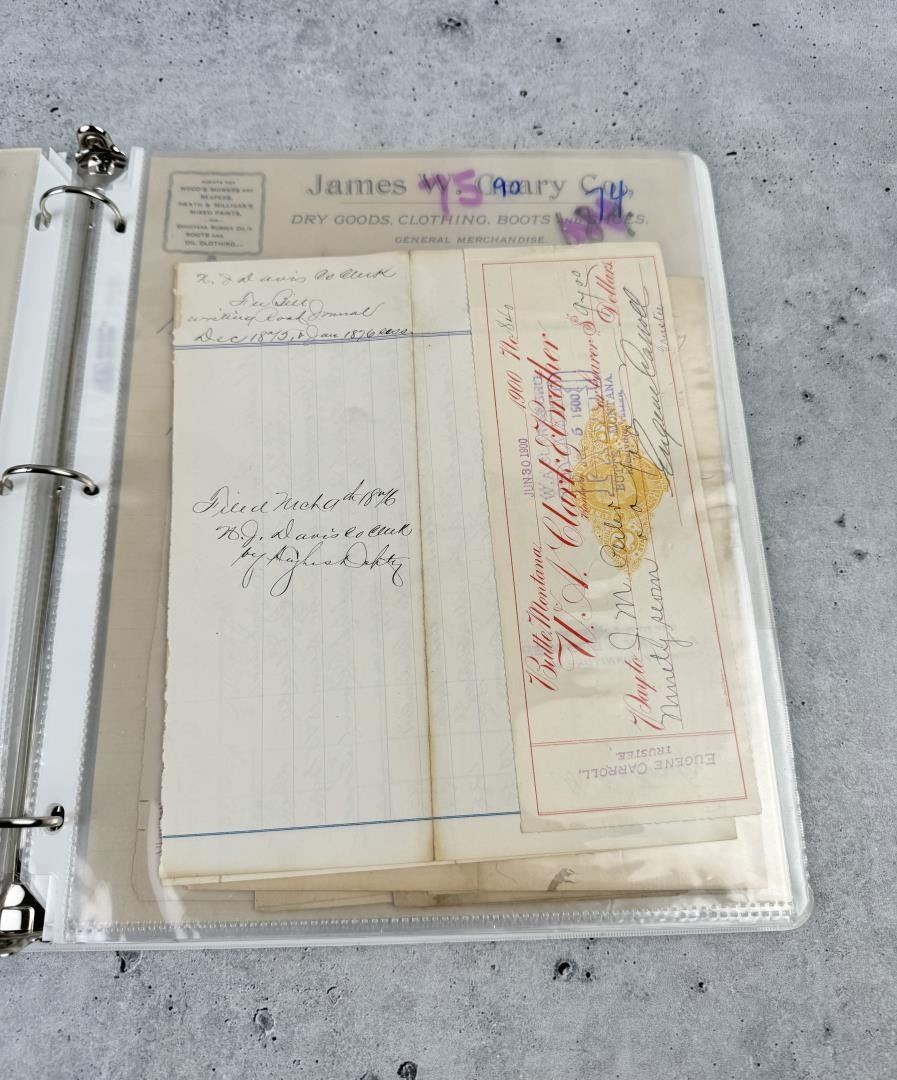 James W. Cleary Co.,
75 90 74
DRY GOODS, CLOTHING, BOOTS AND SHOES,
GENERAL MERCHANDISE
AGENTS FOR
WOOD'S MOWERS AND
REAPERS,
HEATH & MILLIGAN'S
MIXED PAINTS,
GOODYEAR RUBBER CO.'S
BOOTS AND
OIL CLOTHING
N. J. Davis Co Clerk
Fee Bill
writing Road Journal
Dec 1875, & Jan 1876
Filed Mch 9th 1876
N. J. Davis Co Clerk
by Hughes Dpty
Butte, Montana, JUN 30 1900 1900 No. 860
W. A. Clark & Brother
Pay to J. M. or bearer $ 97 00
Ninety seven Dollars
Eugene Carroll
Trustee
5 1900
BUTTE, MONTANA.
EUGENE CARROLL,
TRUSTEE.